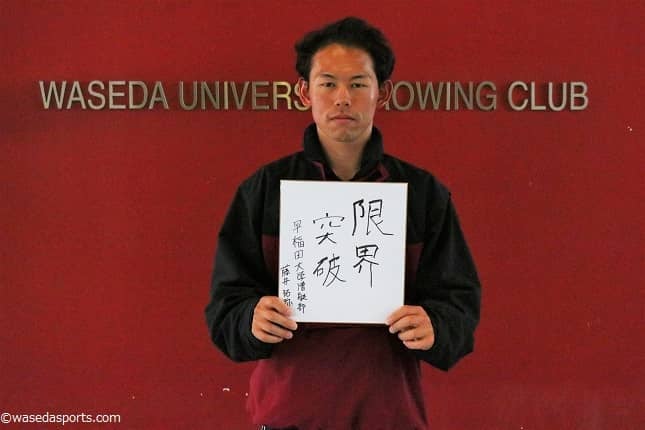 WASEDA UNIVERS OWING CLUB
限界
突破
早稲田大学漕艇部
藤井拓弥
©wasedasports.com